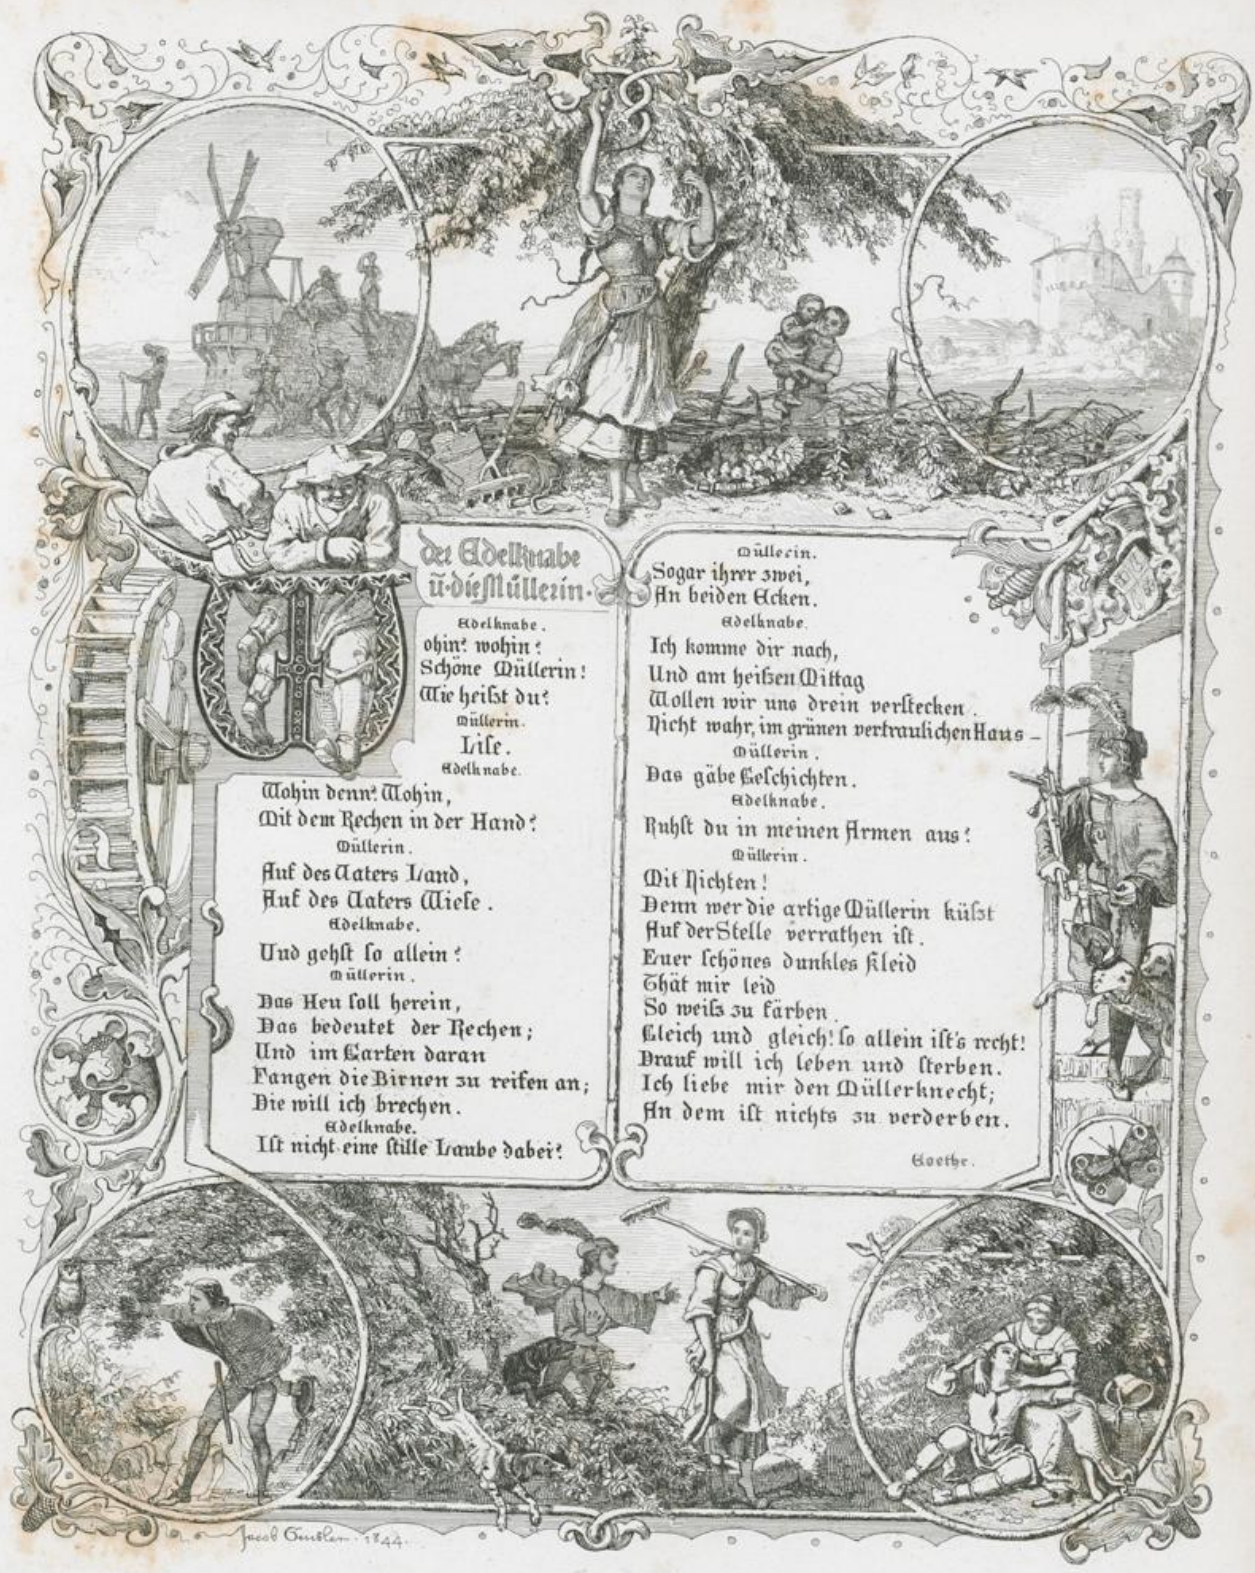 der Edelknabe
ū. die Müllerin.
Edelknabe.
Wohin? wohin?
Schöne Müllerin!
Wie heißt du?
Müllerin.
Lise.
Edelknabe.
Wohin denn? Wohin,
Mit dem Rechen in der Hand?
Müllerin.
Auf des Vaters Land,
Auf des Vaters Wiese.
Edelknabe.
Und gehst so allein?
Müllerin.
Das Heu soll herein,
Das bedeutet der Rechen;
Und im Garten daran
Fangen die Birnen zu reifen an;
Die will ich brechen.
Edelknabe.
Ist nicht eine stille Laube dabei?
Müllerin.
Sogar ihrer zwei,
An beiden Ecken.
Edelknabe.
Ich komme dir nach,
Und am heißen Mittag
Wollen wir uns drein verstecken.
Nicht wahr, im grünen vertraulichen Haus –
Müllerin.
Das gäbe Geschichten.
Edelknabe.
Ruhst du in meinen Armen aus?
Müllerin.
Mit Nichten!
Denn wer die artige Müllerin küßt
Auf der Stelle verrathen ist.
Euer schönes dunkles Kleid
Thät mir leid
So weiß zu färben.
Gleich und gleich! so allein ist's recht!
Drauf will ich leben und sterben.
Ich liebe mir den Müllerknecht;
An dem ist nichts zu verderben.
Goethe.
1844.